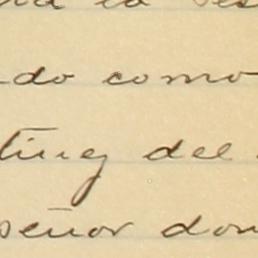 la
do como
ting del
señor don